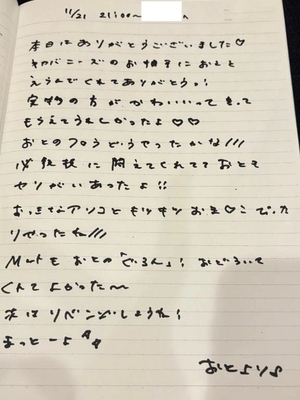 11/21 21:00〜
本日はありがとうございました♡
キャバニーズのお相手におとと
えらんでくれてありがとうっ!
実物の方がかわいいって言って
もらえてうれしかったよ♡♡
おとのフロうどうやったかな///
必殺技に悶えてくれてておとも
ヤリがいあったよ!!
おっきなアソコともツキツキ お♡こ ぴった
りやったね///
Mっ+も おとの「ぐるん」! おどろいて
くれて よかった〜
次は リベンジしようね!
まっとーよ
おとより♪